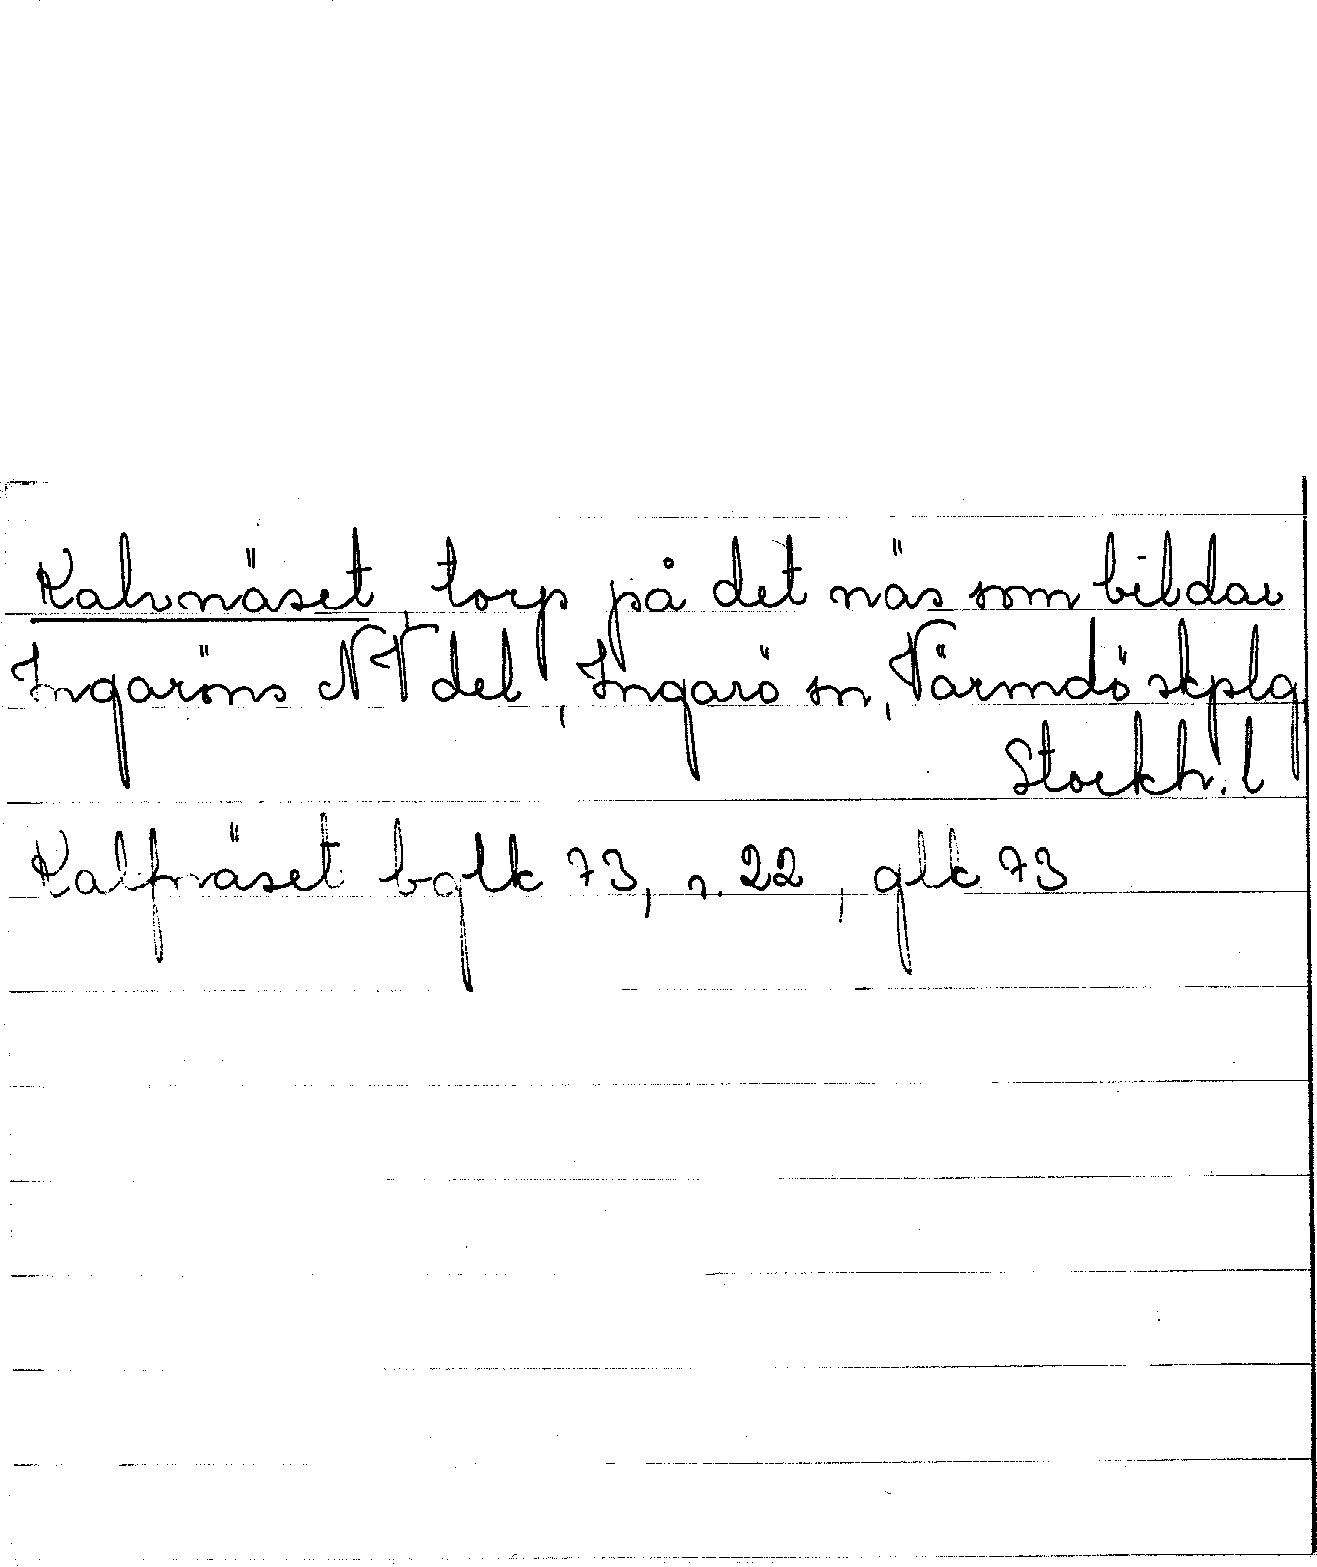 Kalvnäset, torp på det näs som bildar
Ingaröns NV del, Ingarö sn, Värmdö skplg
Stockh. l
Kalfnäset bglk 73, r. 22, glk 73